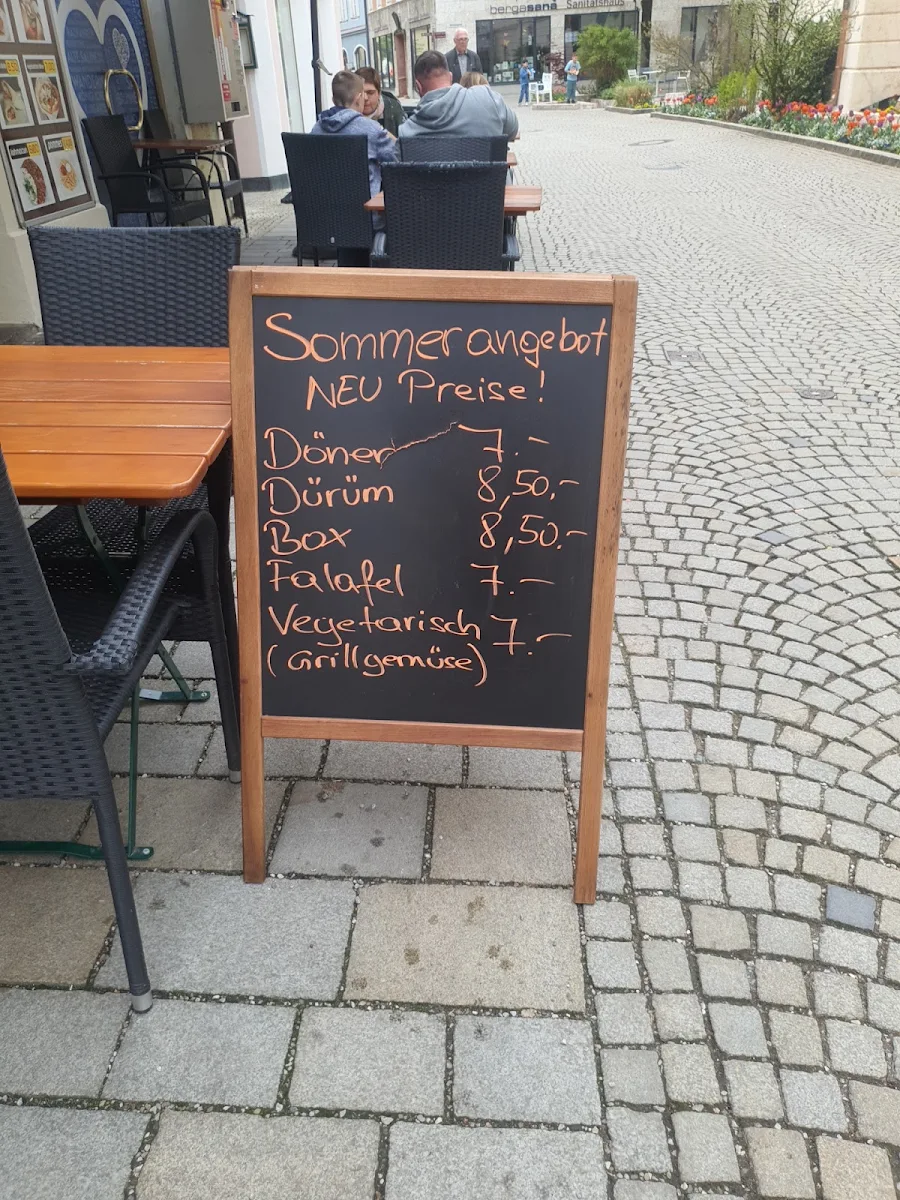 bergasana Sanitätshaus
Sommerangebot
NEU Preise!
Döner 7.–
Dürüm 8,50,–
Box 8,50.–
Falafel 7.–
Vegetarisch 7.–
(Grillgemüse)